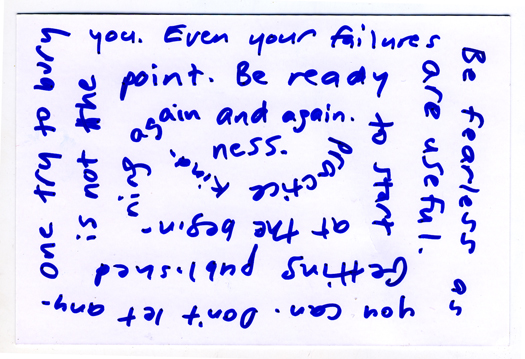 Be fearless as
you can. Don't let any-
one try to bury
you. Even your failures
are useful.
Getting published
is not the
point. Be ready
to start
at the begin-
ning
again and again.
Practice kind-
ness.